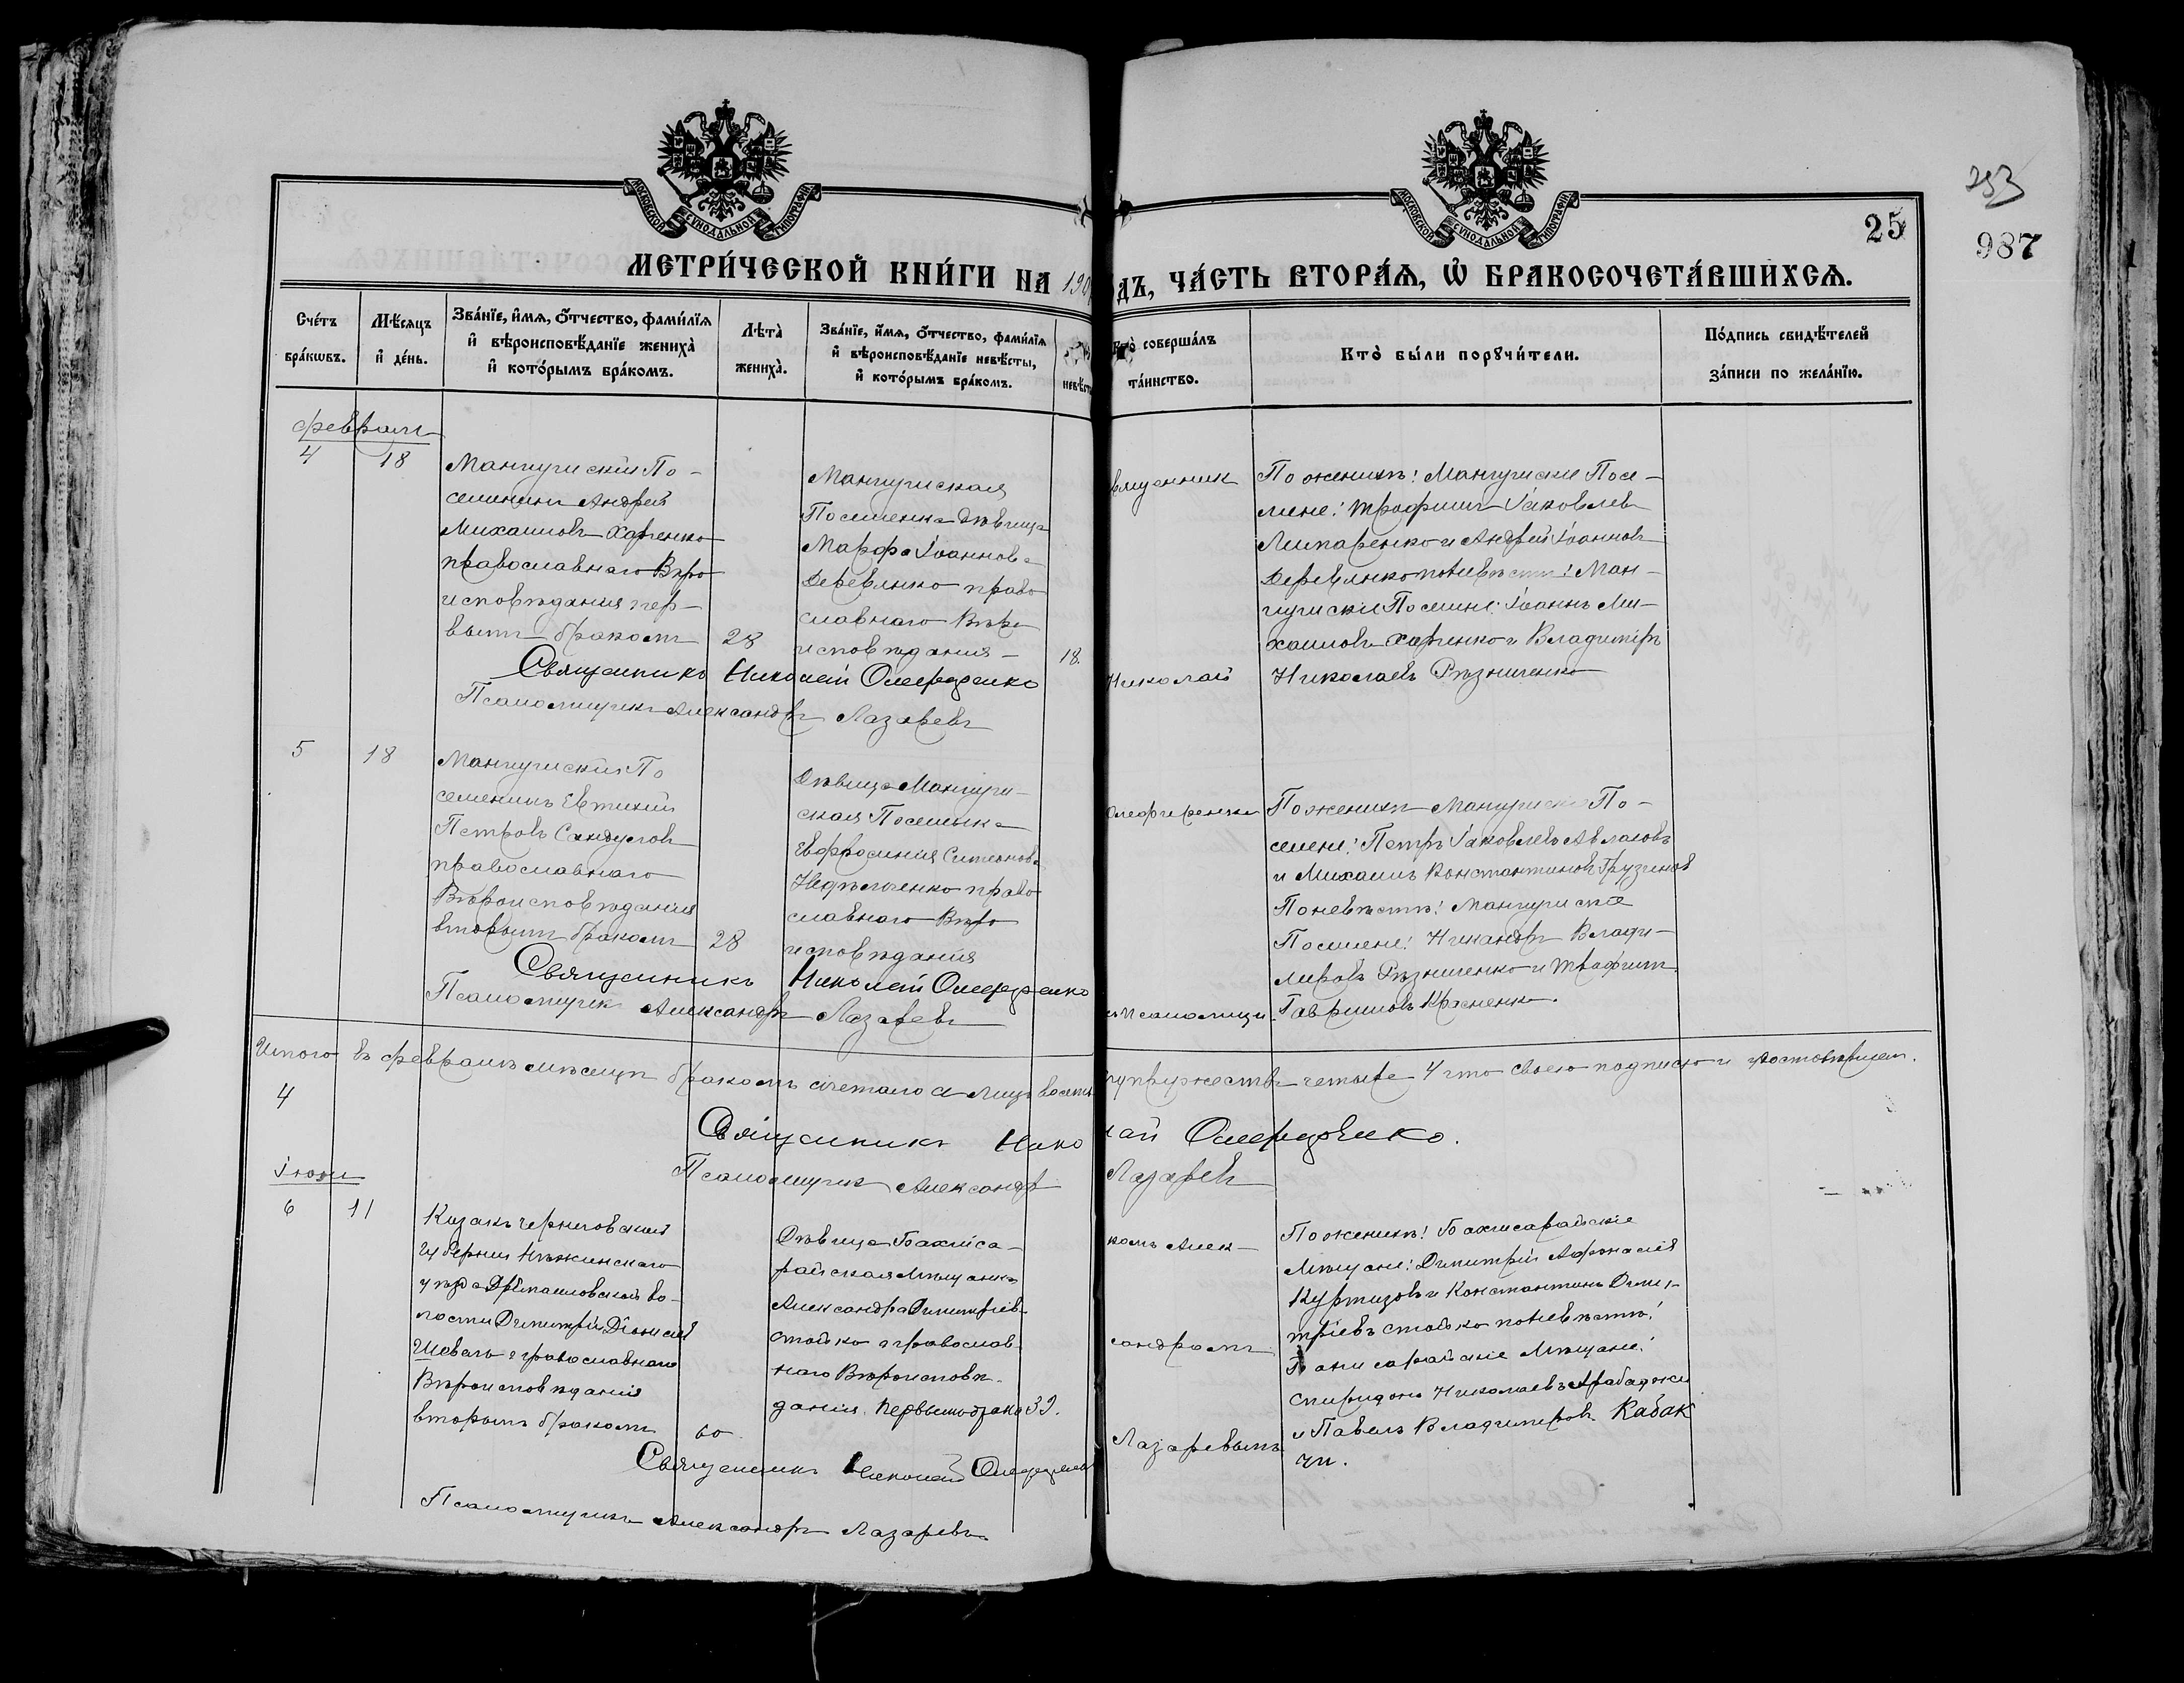 МОСКОВСКОЙ СѴНОДАЛЬНОЙ ТИПОГРАФІИ
МОСКОВСКОЙ СѴНОДАЛЬНОЙ ТИПОГРАФІИ
253
25
987
МЕТРИ́ЧЕСКОЙ КНИ́ГИ НА 190
ДЪ, ЧА́СТЬ ВТОРА́Ѧ, Ѡ҆ БРАКОСОЧЕТА́ВШИХСѦ.
Сче́тъ
бра́кѡвъ.
Мѣ́сѧцъ
и҆ де́нь.
Зва́нїе, и҆́мѧ, ѻ҆́тчество, фами́лїѧ
и҆ вѣроисповѣ́данїе жениха̀
и҆ кото́рымъ бра́комъ.
Лѣта̀
жениха̀.
Зва́нїе, и҆́мѧ, ѻ҆́тчество, фами́лїѧ
и҆ вѣроисповѣ́данїе невѣ́сты,
и҆ кото́рымъ бра́комъ.
невѣ́ст
Кто̀ соверша́лъ
та́инство.
Кто̀ бы́ли порꙋчи́тели.
По́дпись свидѣ́телей
за́писи по жела́нїю.
Февраль
4
18
Мангушскій По-
селянинъ Андрей
Михаиловъ Харченко
православнаго Вѣро
исповѣданія пер-
вымъ бракомъ
28
Мангушская
Поселенка Дѣвица
Марфа Іоаннова
Деревянко право
славнаго Вѣро
исповѣданія
18.
вященник
Николай
По жениху: Мангушскіе Посе-
ляне: Трофимъ Іаковлев
Липаренко и Андрей Іоаннов
Деревянко по невѣсти: Ман-
гушскіе Поселяне: Іоаннъ Ми-
хаиловъ Харченко и Владиміръ
Николаевъ Рѣзниченко
Священникъ Николай
Псаломщикъ Александръ Лазаревъ
5
18
Мангушскій По
селенинъ Евтихій
Петровъ Сандулов
православнаго
Вѣроисповѣданія
вторымъ бракомъ
28
Дѣвица Мангуш-
ская Поселенка
Евфросинія Симеонова
право
славнаго Вѣро
исповѣданія
съ псаломщи
По жениху Мангушскіе По-
селяне: Петръ Іаковлевъ Авлаховъ
и Михаилъ Константиновъ Грузиновъ
По невѣсти: Мангушскіе
Поселяне: Никандръ Влади-
мировъ Рѣзниченко и Трофимъ
Гавриловъ
Священникъ Николай
Псаломщикъ Александръ Лазаревъ
Итого въ февралѣ мѣсяцѣ бракомъ сочеталося лицъ восемь
супружествъ четыре 4 что своею подписью и удостовѣряем.
4
Священникъ Нико
лай
Псаломщикъ Александръ
Лазаревъ
Іюнь
6
11
Казакъ Черниговской
губерніи Нѣжинскаго
уѣзда во-
лости Димитрій Діонисіев
Шеваль православнаго
Вѣроисповѣданія
вторымъ бракомъ
60
Дѣвица Бахчиса-
райская Мѣщанка
Александра Димитріев
Стойко православ-
наго Вѣроисповѣ-
данія. первымъ брако
39.
комъ Алек-
сандромъ
Лазаревымъ
По жениху: Бахчисарайскіе
Мѣщане: Димитрій Афанасіев
Куртизовъ и Константинъ Дими-
тріевъ Стойко по невѣсти:
Бахчисарайскіе Мѣщане:
Спиридонъ Николаевъ Арабаджи
и Павелъ Владимировъ Кабак
чи.
Священникъ Николай
Псаломщикъ Александръ Лазаревъ